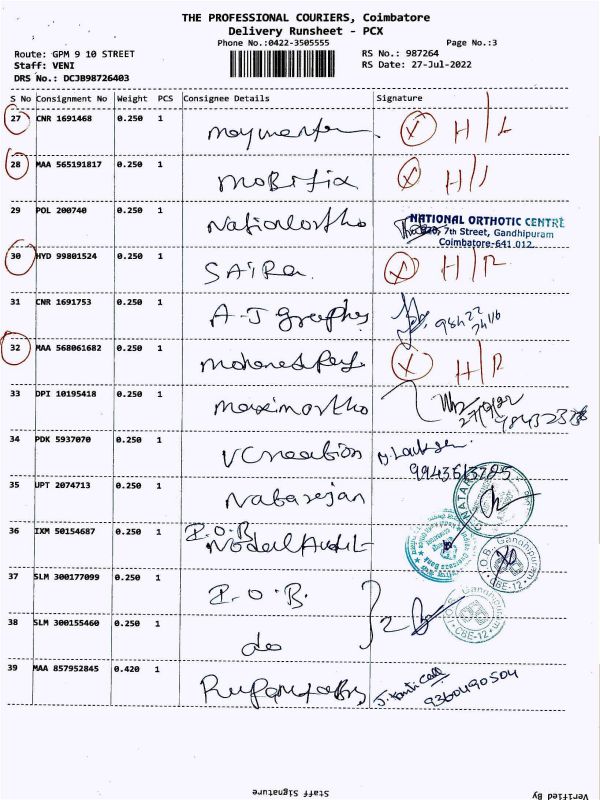 THE PROFESSIONAL COURIERS, Coimbatore
Delivery Runsheet - PCX
Phone No.:0422-3505555
Page No.:3
Route: GPM 9 10 STREET
RS No.: 987264
Staff: VENI
RS Date: 27-Jul-2022
DRS No.: DCJB98726403
S No Consignment No Weight PCS Consignee Details Signature
27 CNR 1691468 0.250 1
28 MAA 565191817 0.250 1 MoBifix
29 POL 200740 0.250 1 Nationlortho
NATIONAL ORTHOTIC CENTRE
7th Street, Gandhipuram
Coimbatore-641 012.
30 HYD 99801524 0.250 1 SAIRa H/R
31 CNR 1691753 0.250 1 A-J Graphs
32 MAA 568061682 0.250 1 H/R
33 DPI 10195418 0.250 1 Maximortho
34 PDK 5937070 0.250 1 V Creation
35 UPT 2074713 0.250 1 Natarajan
36 IXM 50154687 0.250 1 I.O.B
Nodal Audit
37 SLM 300177099 0.250 1 I.O.B.
38 SLM 300155460 0.250 1 do
39 MAA 857952845 0.420 1
9360490504
Staff Signature
Verified By